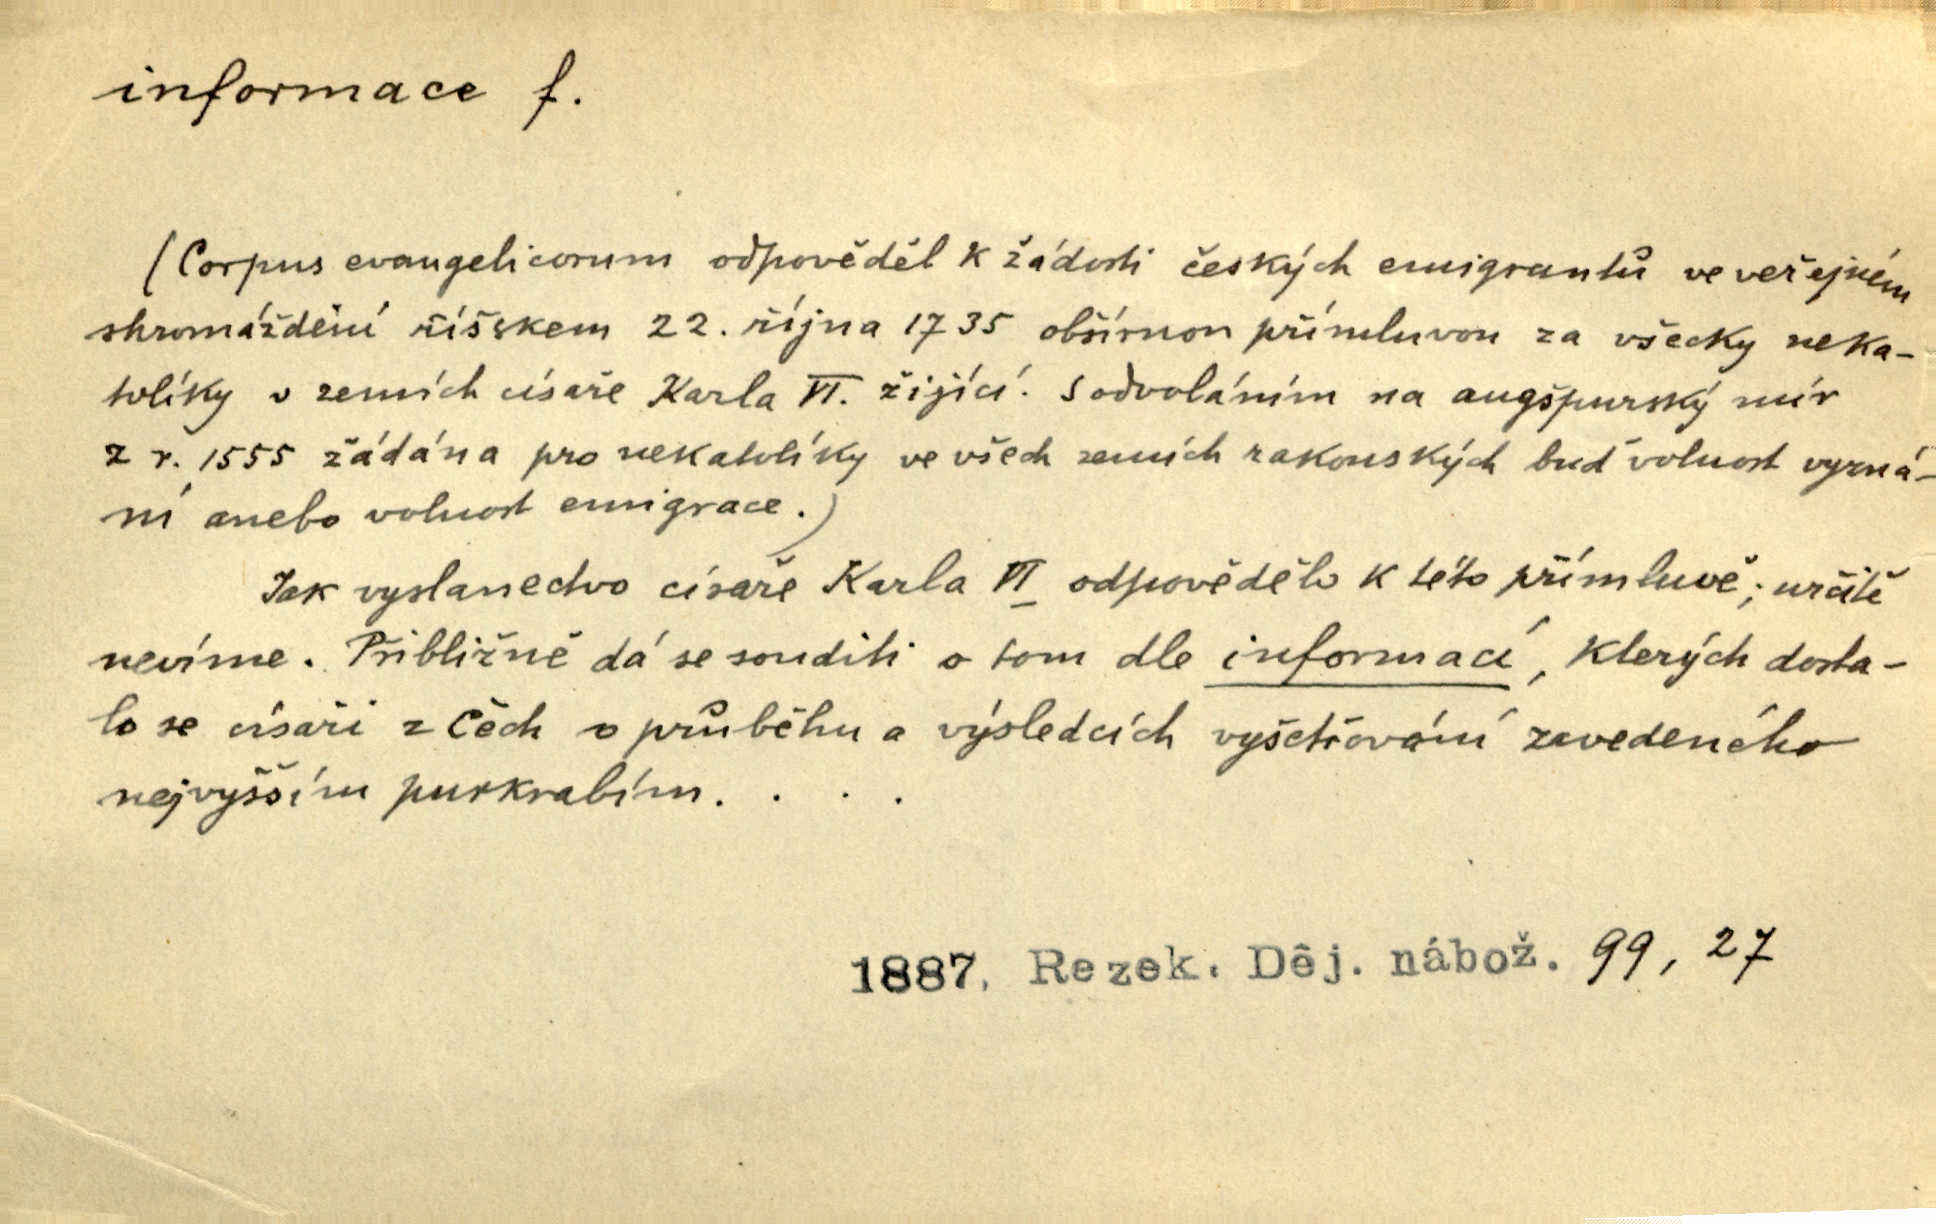 informace f.
(Corpus evangelicorum odpověděl k žádosti českých emigrantů ve veřejném
shromáždění říšskem 22. října 1735 obšírnou přímluvou za všecky neka-
tolíky v zemích císaře Karla VI. žijící. S odvoláním na augšpurský mír
z r. 1555 žádána pro nekatolíky ve všech zemích rakouských buď volnost vyzná-
ní anebo volnost emigrace.)
Jak vyslanectvo císaře Karla VI odpovědělo k této přímluvě; určitě
nevíme. Přibližně dá se souditi o tom dle informací, kterých dosta-
lo se císaři z Čech o průběhu a výsledcích vyšetřování zavedeného
nejvyšším purkrabím. . . .
1887. Rezek. Děj. nábož. 99, 27